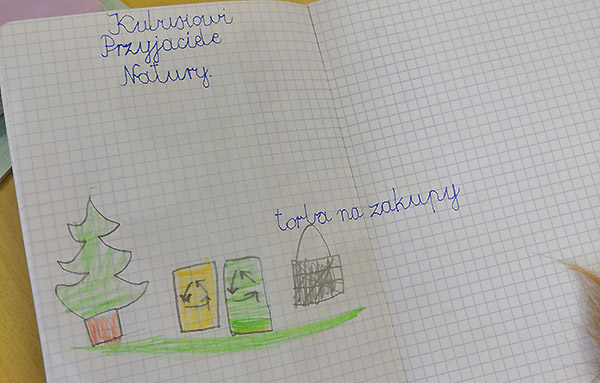 Kubusiowi
Przyjaciele
Natury.
torba na zakupy